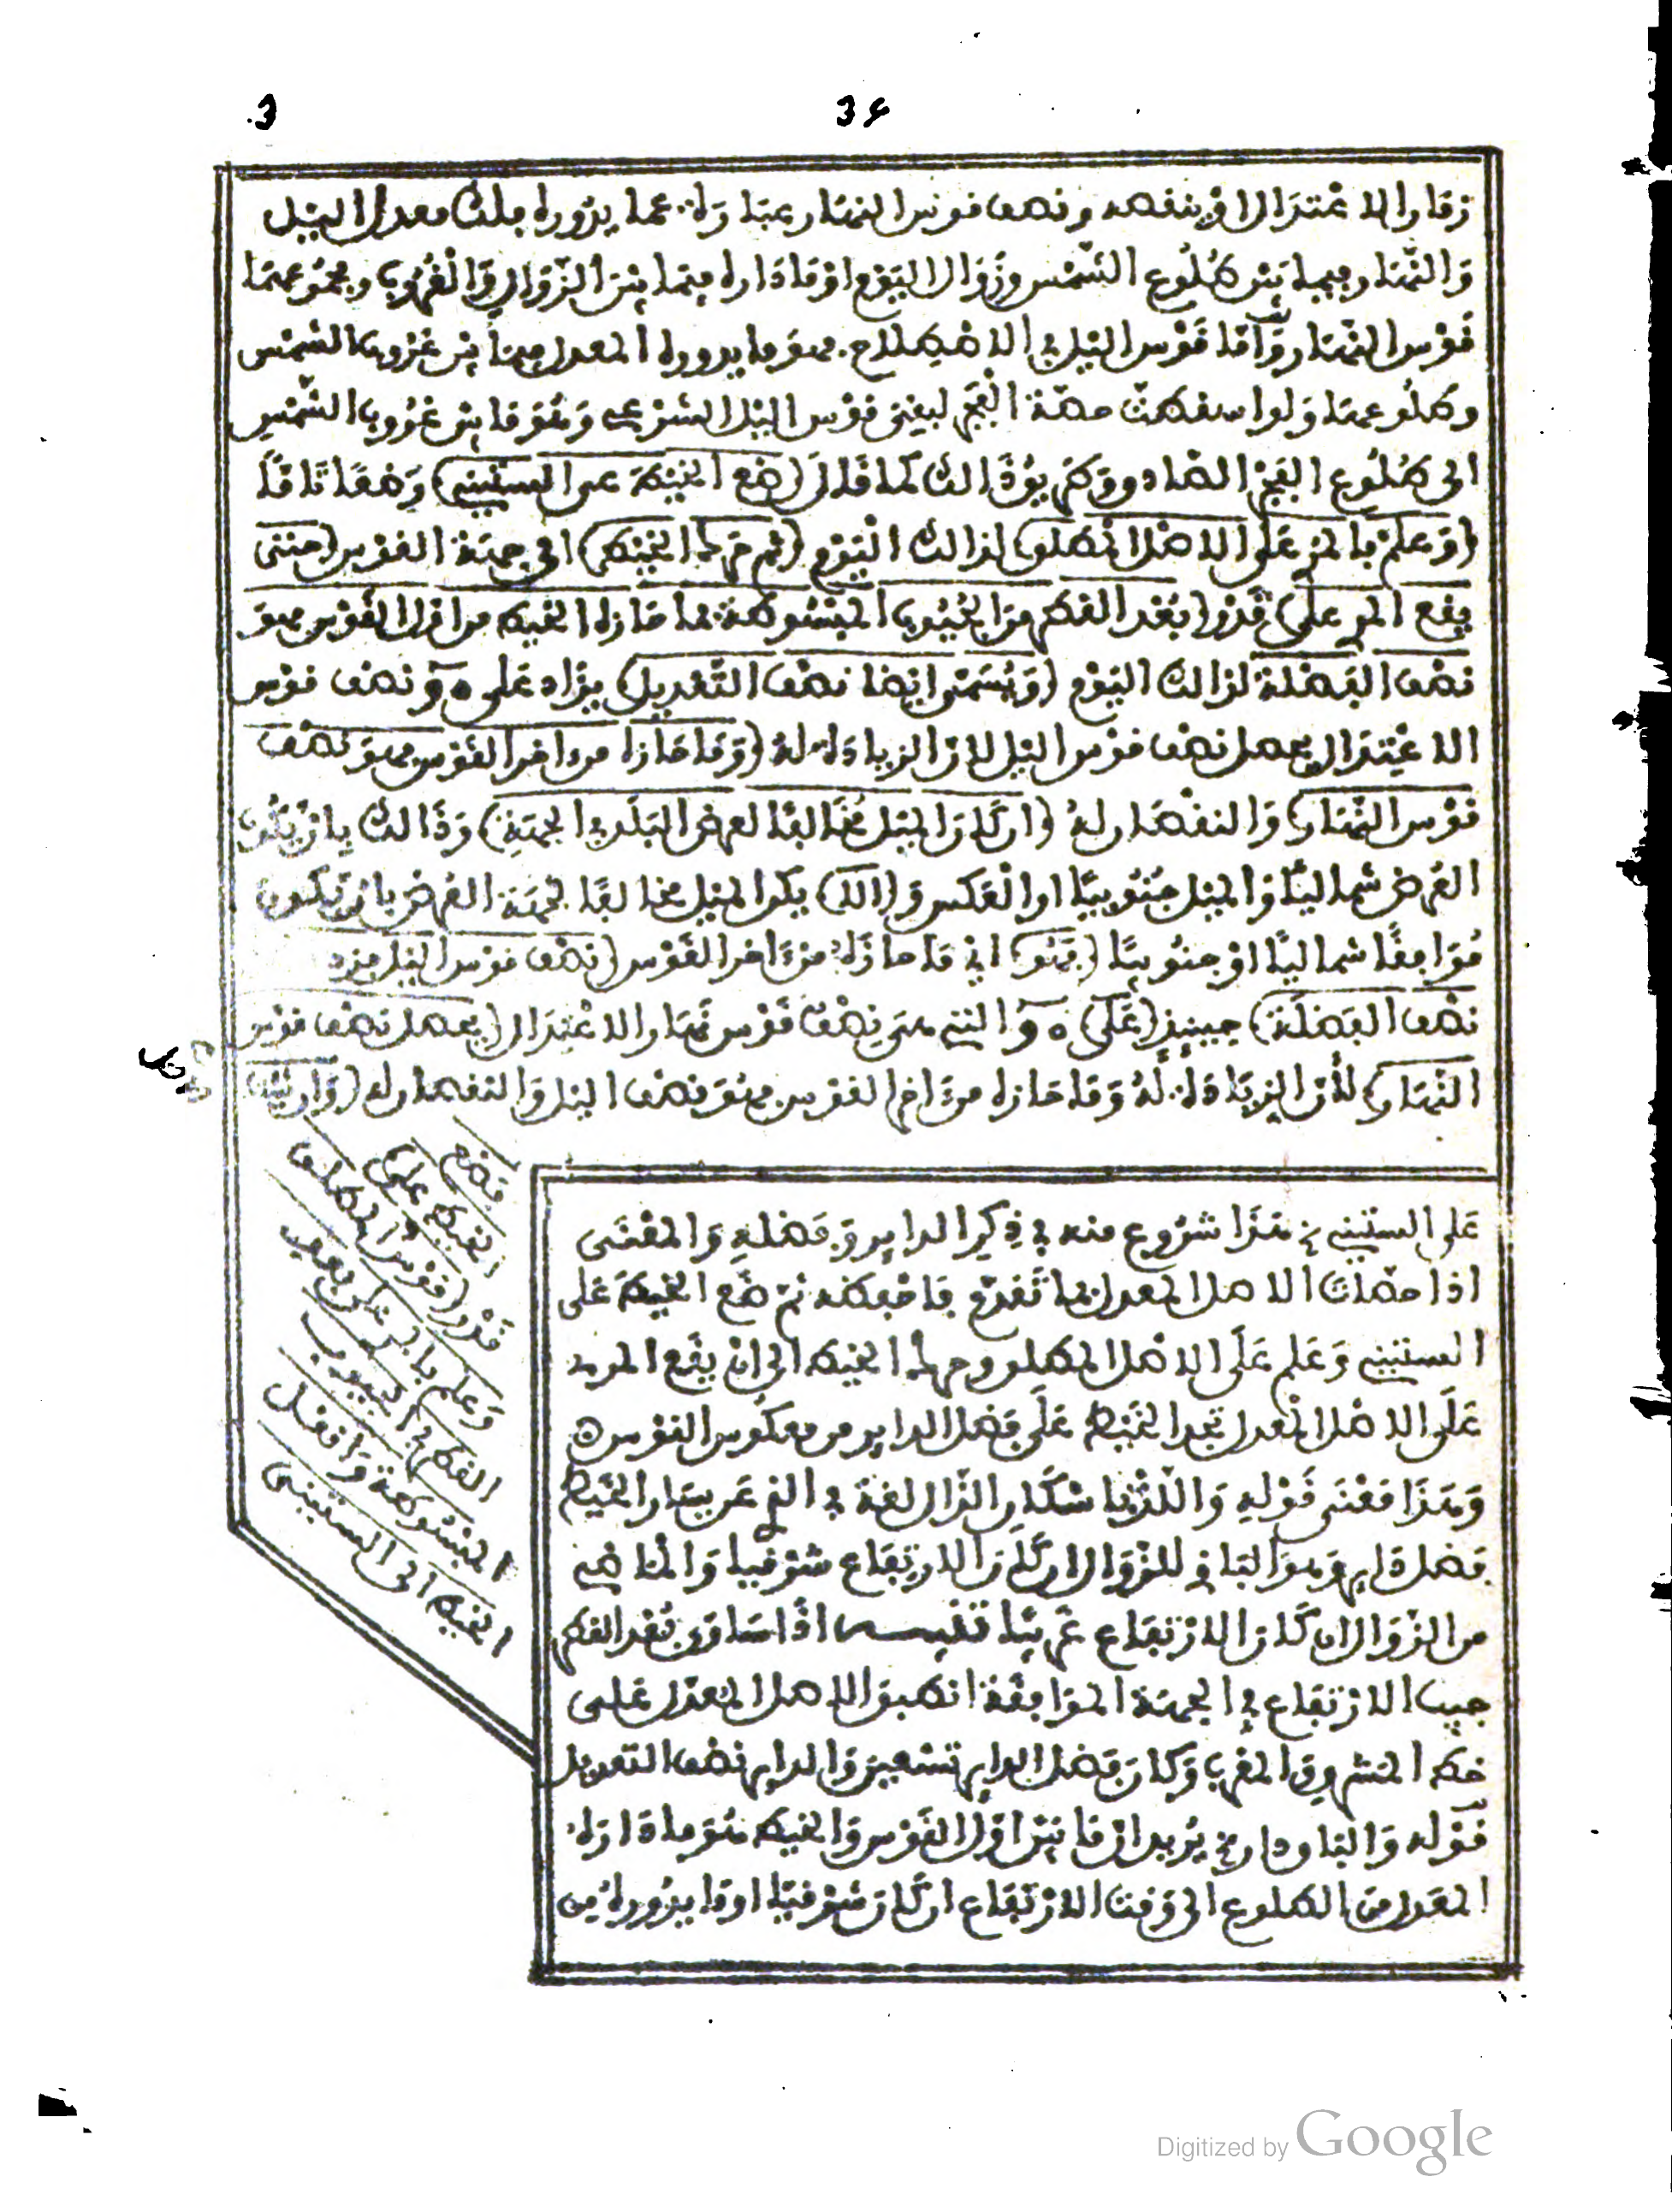 3 34
زمان الاعتدال او ينقصه ونصف قوس النهار عبارة عما يدوره فلك معدل الليل
والنهار فيما بين طلوع الشمس وزوال اليوم او ما داره فيما بين الزوال والغروب ومجموعهما
قوس النهار وأما قوس الليل في الاصطلاح فهو ما يدوره المعدل فيما بين غروب الشمس
وطلوعها ولو اسقطت حصة الفجر لبقي قوس الليل الشرعي وهو ما بين غروب الشمس
الى طلوع الفجر الصادق وطريق ذالك كما قال (ضع الخيط على الستيني) وضعا تاما
(وعلم بالمري على الاصل المطلق) لذالك اليوم (ثم حرك الخيط) الى جهة القوس (حتى
يقع المري على) قدر (بعد القطر من الجيوب المبسوطة فما حازه الخيط من اول القوس فهو
نصف الفضلة) لذالك اليوم (ويسمى ايضا نصف التعديل) يزاد على ه و نصف قوس
الاعتدال يحصل نصف قوس الليل لان الزيادة له (وما حازه من اخر القوس فهو نصف
قوس النهار) والنقصان له (ان كان الميل مخالفا لعرض البلد في الجهة) وذالك بان يكون
العرض شماليا والميل جنوبيا او العكس و(الا) يكن الميل مخالفا لجهة العرض بان يكون
موافقا شماليا او جنوبيا (فهو) اي ما حازه من ءاخر القوس (نصف قوس الليل فزد
نصف الفضلة) حينئذ (على) ه و التي هي نصف قوس نهار الاعتدال (يحصل نصف قوس
النهار) لأن الزيادة له وما حازه من ءاخر القوس فهو نصف الليل والنقصان له (وان شئت
فضع
الخيط على
قدر (قوس المطلق
وعلم بالمري على بعد
القطر في الجيوب
المبسوطة وانقل
الخيط الى الستيني
على الستيني الخ هذا شروع منه في ذكر الداير وفضله والمعنى
اذا حصلت الاصل المعدل بما تقدم فاحفظه ثم ضع الخيط على
الستيني وعلم على الاصل المطلق وحرك الخيط الى ان يقع المري
على الاصل المعدل تجد الخيط على فضل الداير من معكوس القوس ه
وهذا معنى قوله
فضل داير وهو الباقي للزوال ان كان الارتفاع شرقيا والماضي
من الزوال ان كان الارتفاع غربيا تنبيه اذا ساوى بعد القطر
جيب الارتفاع في الجهة الموافقة انطبق الاصل المعدل على
خط المشرق والمغرب وكان فضل الداير تسعين والداير نصف التعديل
قوله والباق دار الخ يريد ان ما بين اول القوس والخيط هو ما داره
المعدل من الطلوع الى وقت الارتفاع ان كان شرقيا او ما يدوره من
Digitized by Google